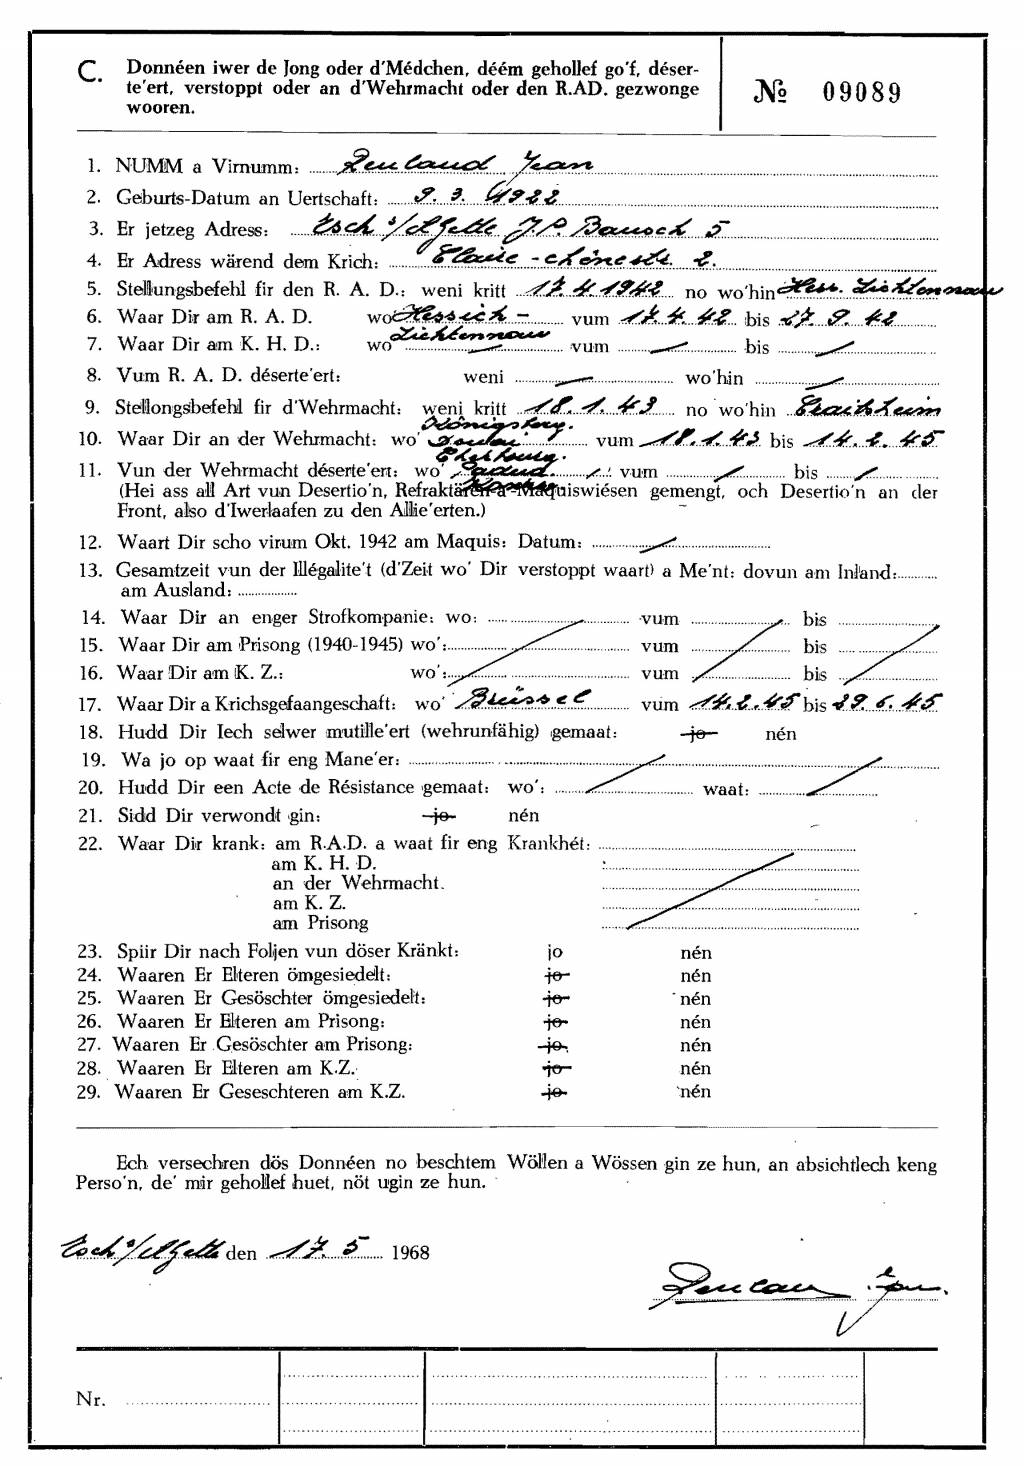 C. Donnéen iwer de Jong oder d'Médchen, déém gehollef go'f, déser-
te'ert, verstoppt oder an d'Wehrmacht oder den R.AD. gezwonge
wooren.
№ 09089
1. NUMM a Virnumm: Reuland Jean
2. Geburts-Datum an Uertschaft: 9. 3. 1922
3. Er jetzeg Adress: Esch s/Alzette J.P. Bausch 5
4. Er Adress wärend dem Krich: 2.
5. Stellungsbefehl fir den R. A. D.: weni kritt 17.4.1942 no wo'hin Hess. Lichtennau
6. Waar Dir am R. A. D. wo Hessich- vum 17.4.42 bis 27.9.42
Lichtennau
7. Waar Dir am K. H. D.: wo vum bis
8. Vum R. A. D. déserte'ert: weni wo'hin
9. Stellongsbefehl fir d'Wehrmacht: weni kritt 18.1.43 no wo'hin Crailsheim
Königsberg.
10. Waar Dir an der Wehrmacht: wo' vum 18.1.43 bis 14.2.45
11. Vun der Wehrmacht déserte'ert: wo' vum bis
(Hei ass all Art vun Desertio'n, Refraktären a Maquiswiésen gemengt, och Desertio'n an der
Front, also d'Iwerlaafen zu den Allie'erten.)
12. Waart Dir scho virum Okt. 1942 am Maquis: Datum:
13. Gesamtzeit vun der Illégalite't (d'Zeit wo' Dir verstoppt waart) a Me'nt: dovun am Inland:
am Ausland:
14. Waar Dir an enger Strofkompanie: wo: vum bis
15. Waar Dir am Prisong (1940-1945) wo': vum bis
16. Waar Dir am K. Z.: wo': vum bis
17. Waar Dir a Krichsgefaangeschaft: wo' Brüssel vum 14.2.45 bis 29.6.45
18. Hudd Dir Iech selwer mutille'ert (wehrunfähig) gemaat: jo nén
19. Wa jo op waat fir eng Mane'er:
20. Hudd Dir een Acte de Résistance gemaat: wo': waat:
21. Sidd Dir verwondt gin: jo nén
22. Waar Dir krank: am R.A.D. a waat fir eng Krankhét:
am K. H. D.
an der Wehrmacht.
am K. Z.
am Prisong
23. Spiir Dir nach Foljen vun döser Kränkt: jo nén
24. Waaren Er Elteren ömgesiedelt: jo nén
25. Waaren Er Gesöschter ömgesiedelt: jo nén
26. Waaren Er Elteren am Prisong: jo nén
27. Waaren Er Gesöschter am Prisong: jo nén
28. Waaren Er Elteren am K.Z. jo nén
29. Waaren Er Geseschteren am K.Z. jo nén
Ech versechren dös Donnéen no beschtem Wöllen a Wössen gin ze hun, an absichtlech keng
Perso'n, de' mir gehollef huet, nöt ugin ze hun.
Esch s/Alzette den 17. 5 1968
Reuland Jean
Nr.